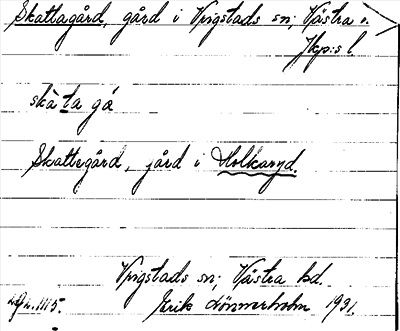 Skattagård, gård i Vrigstads sn; Västra h.
Jkp:s l
skàta gá
Skattegård, gård i Holkaryd.
Vrigstads sn; Västra hd.
Erik Lönnerholm 1931.